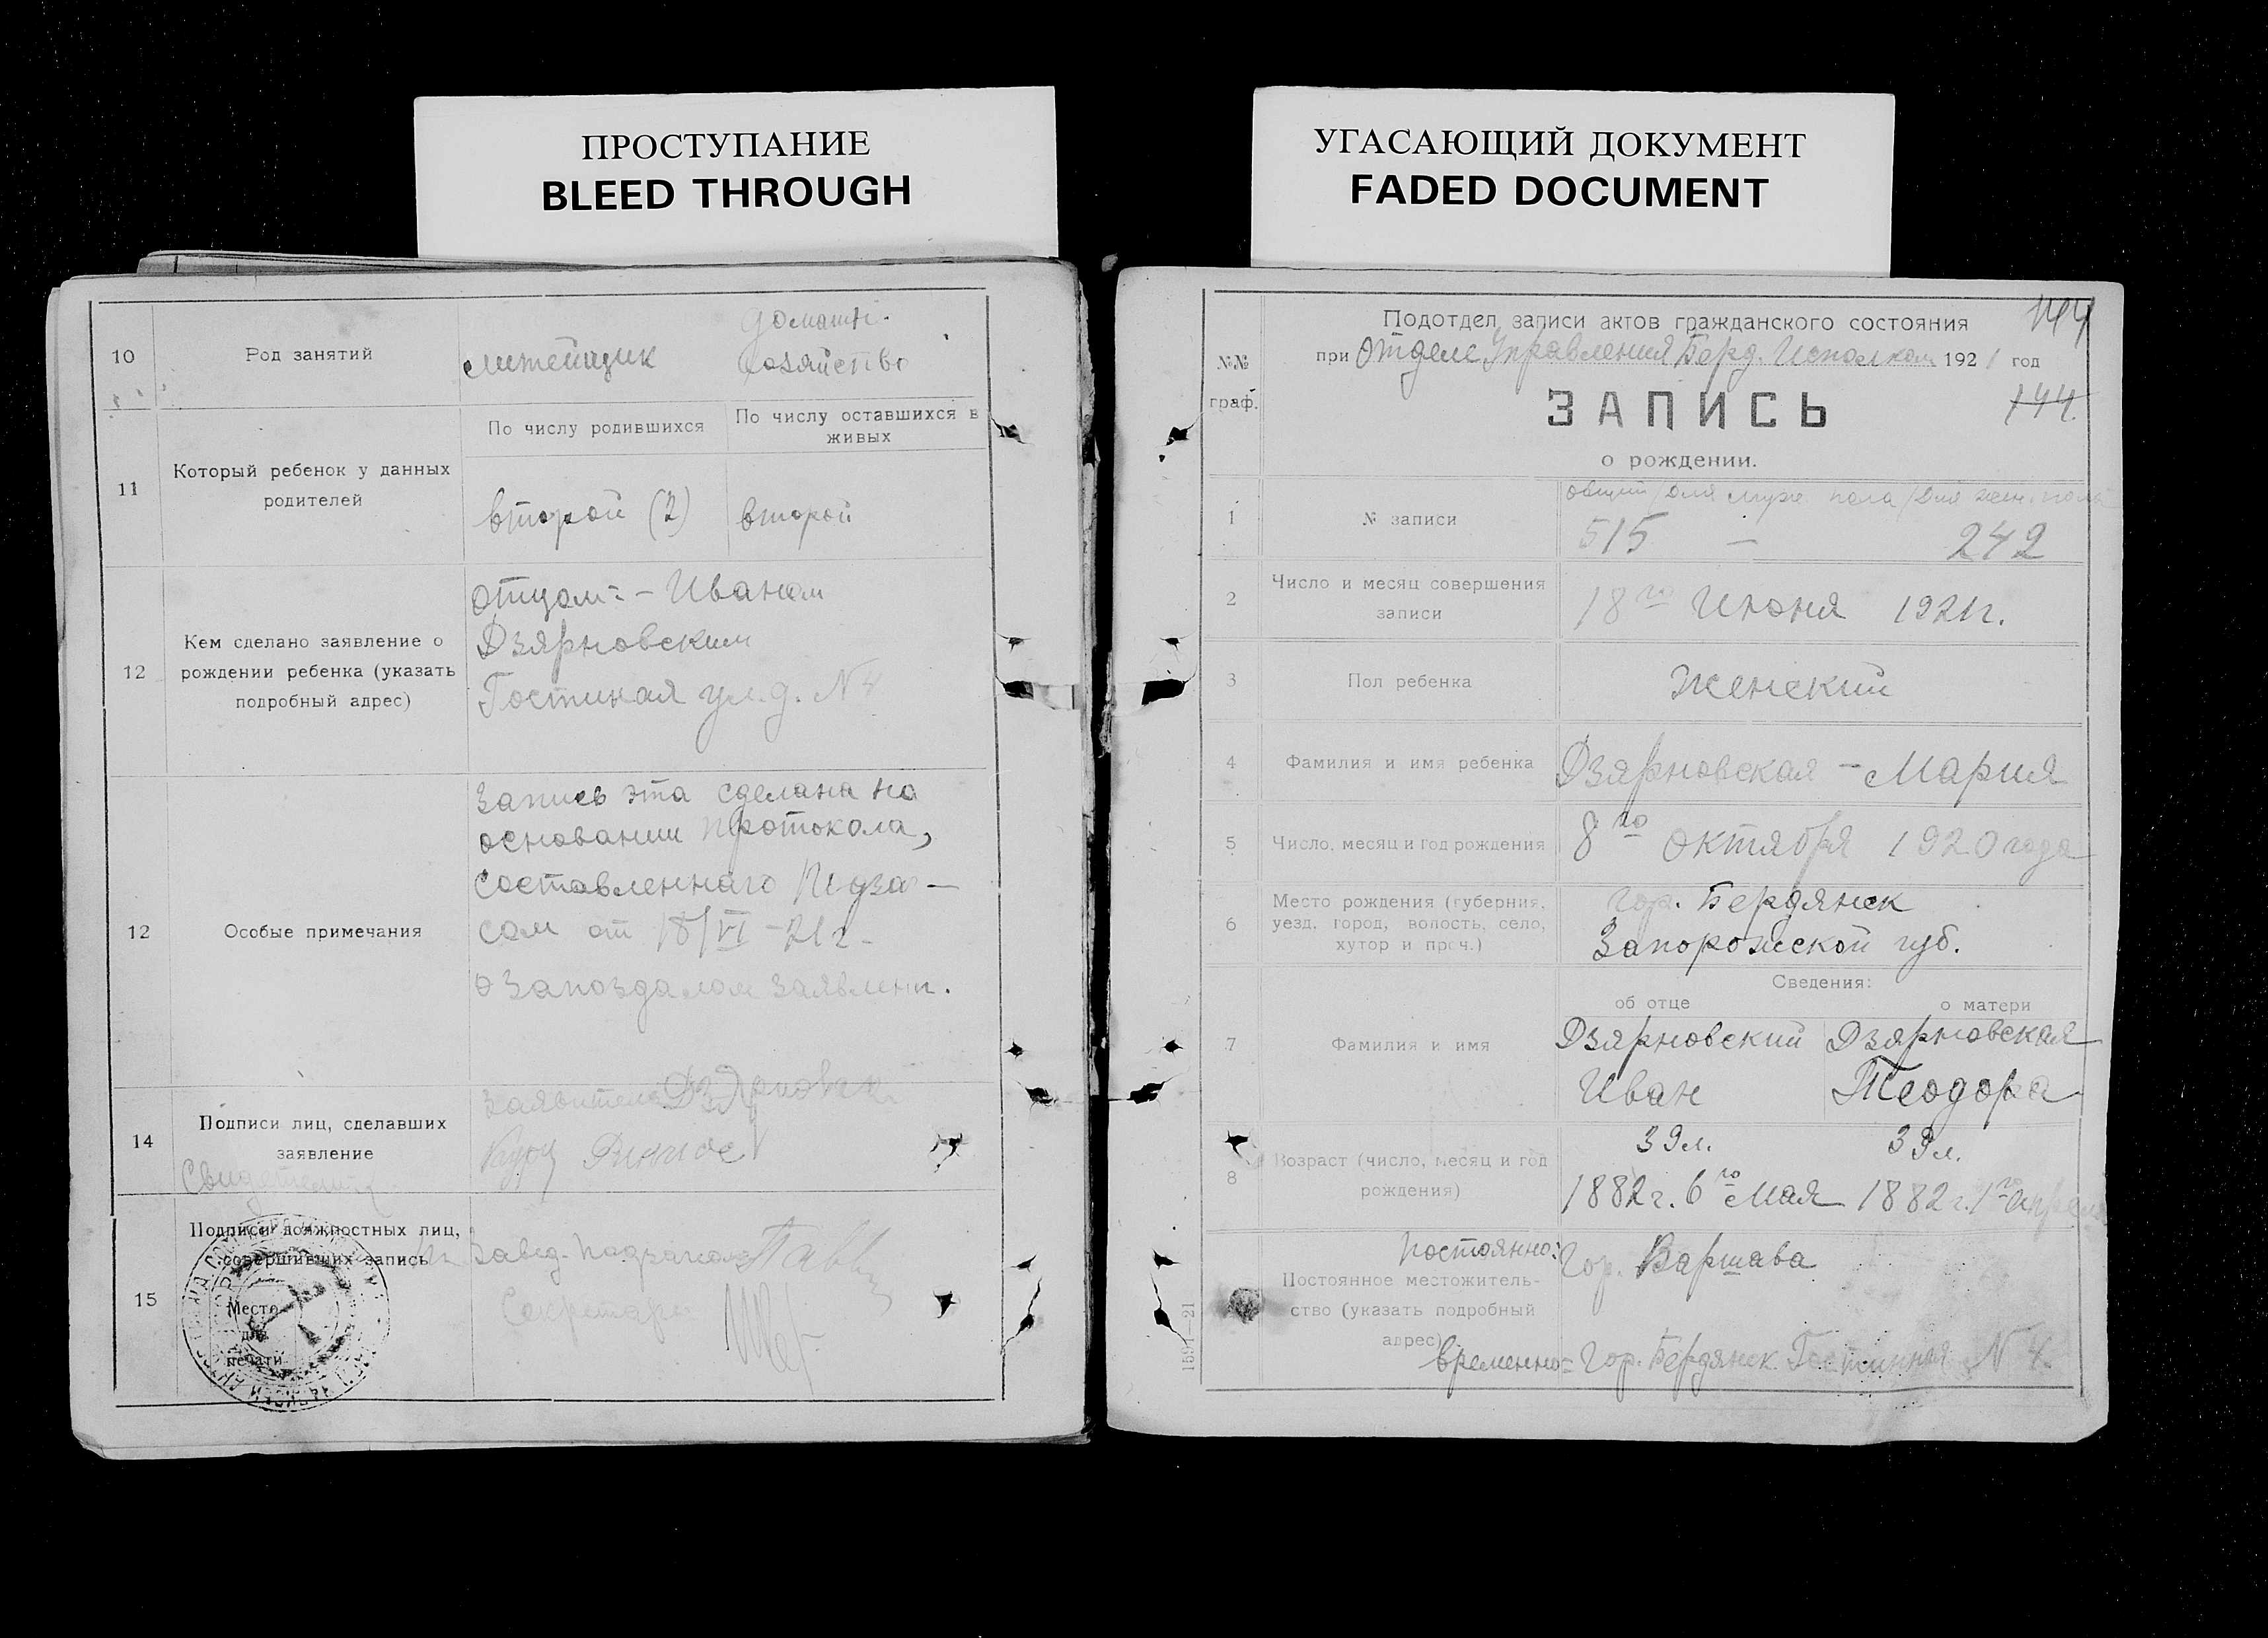 ПРОСТУПАНИЕ
BLEED THROUGH
УГАСАЮЩИЙ ДОКУМЕНТ
FADED DOCUMENT
10
Род занятий
литейщик
домашн.
хозяйство
11
Который ребенок у данных
родителей
По числу родившихся
По числу оставшихся в
живых
второй (2)
второй
12
Кем сделано заявление о
рождении ребенка (указать
подробный адрес)
отцом: – Иваном
Дзярновским
Гостиная ул. д. N 4
12
Особые примечания
Запись эта сделана на
основании протокола,
составленнаго Подза–
сом от 18/VI –21 г.
о запоздалом заявлени.
14
Подписи лиц, сделавших
заявление
Свидетели
заявитель
15
Подписи должностных лиц,
совершивших запись
Место
для
печати
Завед.
Секретарь
144
№№
граф.
Подотдел записи актов гражданского состояния
при Отделе Управления Берд. Исполком 1921 год
ЗАПИСЬ
144.
о рождении.
1
№ записи
общий / для муж. пола / для жен. пола
515 — 242
2
Число и месяц совершения
записи
18го Июня 1921г.
3
Пол ребенка
Женский
4
Фамилия и имя ребенка
Дзярновская – Мария
5
Число, месяц и год рождения
8го октября 1920 года
6
Место рождения (губерния,
уезд, город, волость, село,
хутор и проч.)
гор. Бердянск
Запорожской губ.
Сведения:
об отце
о матери
7
Фамилия и имя
Дзярновский
Иван
Дзярновская
Теодора
8
Возраст (число, месяц и год
рождения)
39л.
1882г. 6го Мая
39л.
1882г. 1го апреля
постоянно:
Гор. Варшава
Постоянное местожитель-
ство (указать подробный
адрес)
временно = Гор. Бердянск Гостинная N 4.
1591—21